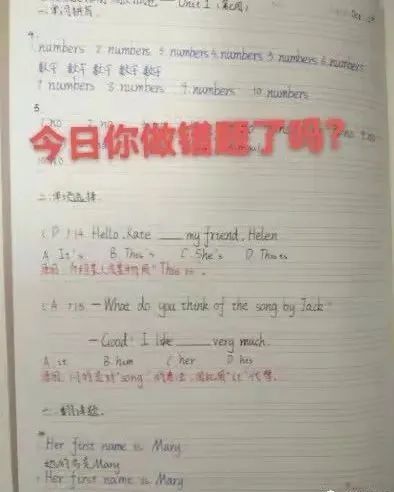 Unit 1 (第2周)
二.单词拼写
4.
1.numbers 2.numbers 3.numbers 4.numbers 5.numbers 6.numbers
数字 数字 数字 数字 数字
7 numbers 8.numbers 9.numbers 10.numbers
5.
今日你做错题了吗?
二.单项选择
( D )14. Hello, Kate ___ my friend, Helen
A. It's B. This's C. She's D. This is
( A )15. —What do you think of the song by Jack
—Good! I like ___ very much.
A. it B. him C. her D. his
原因: 问的是对"song"的看法, 因此用"it"代替.
Her first name is Mary
她的名是Mary
Her first name is Mary